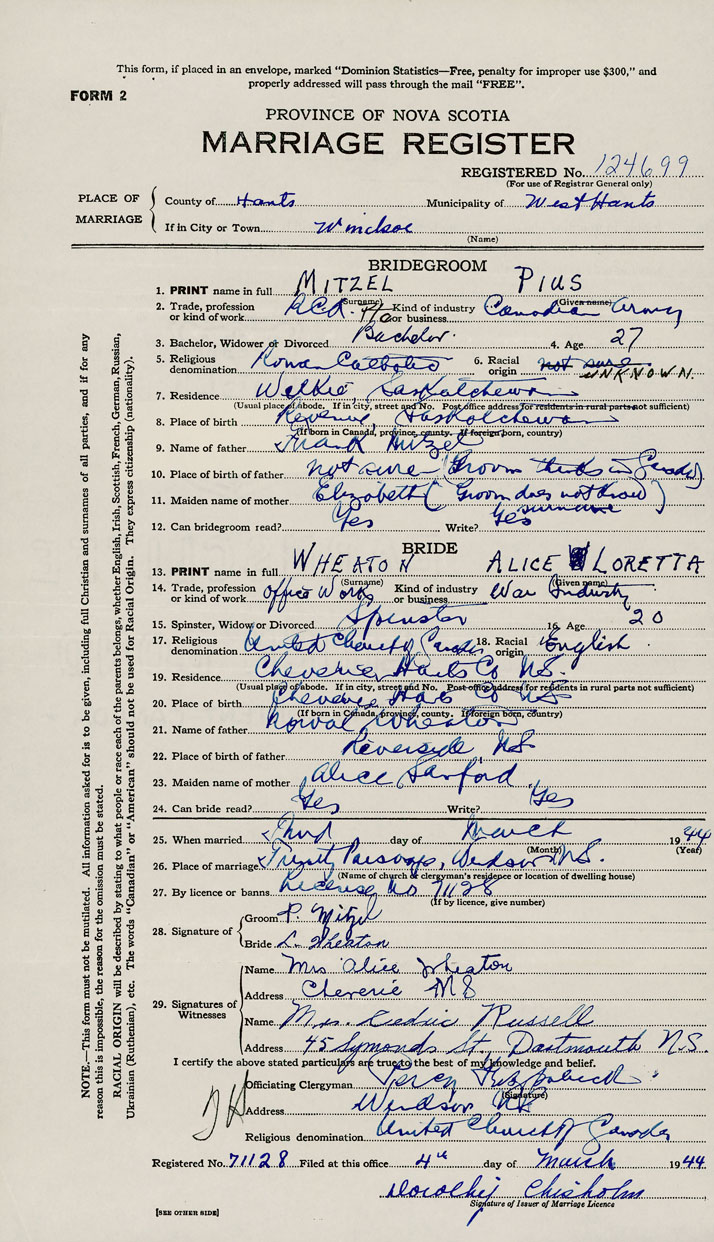 This form, if placed in an envelope, marked "Dominion Statistics—Free, penalty for improper use $300," and
properly addressed will pass through the mail "FREE".
FORM 2
PROVINCE OF NOVA SCOTIA
MARRIAGE REGISTER
REGISTERED No. 124699
(For use of Registrar General only)
PLACE OF MARRIAGE
County of Hants Municipality of West Hants
If in City or Town Windsor
(Name)
BRIDEGROOM
1. PRINT name in full MITZEL PIUS
(Surname) (Given name)
2. Trade, profession or kind of work Kind of industry or business Canadian Army
3. Bachelor, Widower or Divorced Bachelor. 4. Age 27
5. Religious denomination Roman Catholic 6. Racial origin not sure UNKNOWN.
7. Residence Wilkie, Saskatchewan
(Usual place of abode. If in city, street and No. Post office address for residents in rural parts not sufficient)
8. Place of birth Revenue, Saskatchewan
(If born in Canada, province, county. If foreign born, country)
9. Name of father Frank Mitzel
10. Place of birth of father not sure (Groom thinks in Canada)
11. Maiden name of mother Elizabeth (Groom does not know)
surname
12. Can bridegroom read? Yes Write? Yes
BRIDE
13. PRINT name in full WHEATON ALICE LORETTA
(Surname) (Given name)
14. Trade, profession or kind of work office Work Kind of industry or business War Industry
15. Spinster, Widow or Divorced Spinster 16. Age 20
17. Religious denomination United Church of Canada 18. Racial origin English
19. Residence Cheverie Hants Co N.S.
(Usual place of abode. If in city, street and No. Post office address for residents in rural parts not sufficient)
20. Place of birth Cheverie Hants Co NS
(If born in Canada, province, county. If foreign born, country)
21. Name of father Wheaton
22. Place of birth of father Riverside NS
23. Maiden name of mother Alice Sanford
24. Can bride read? Yes Write? Yes
25. When married Third day of March 1944
(Month) (Year)
26. Place of marriage Trinity Parsonage, Windsor N.S.
(Name of church or clergyman's residence or location of dwelling house)
27. By licence or banns License No 71128
(If by licence, give number)
28. Signature of
Groom P. Mitzel
Bride L. Wheaton
29. Signatures of Witnesses
Name Mrs Alice Wheaton
Address Cheverie NS
Name Mrs. Cedric Russell
Address 45 Symonds St, Dartmouth N.S.
I certify the above stated particulars are true to the best of my knowledge and belief.
Officiating Clergyman Percy Fitzpatrick
(Signature)
Address Windsor NS
Religious denomination United Church of Canada
Registered No. 71128 Filed at this office 4th day of March 1944
Dorothy Chisholm
Signature of Issuer of Marriage Licence
[SEE OTHER SIDE]
NOTE.—This form must not be mutilated. All information asked for is to be given, including full Christian and surnames of all parties, and if for any
reason this is impossible, the reason for the omission must be stated.
RACIAL ORIGIN will be described by stating to what people or race each of the parents belongs, whether English, Irish, Scottish, French, German, Russian,
Ukrainian (Ruthenian), etc. The words "Canadian" or "American" should not be used for Racial Origin. They express citizenship (nationality).